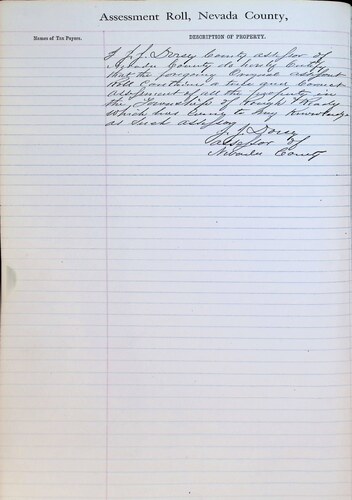 Assessment Roll, Nevada County,
Names of Tax Payers.
DESCRIPTION OF PROPERTY.
I J. J. Dorsey County assessor of
Nevada County do hereby Certify
that the foregoing Original assessment
Roll Constitutes a true and Correct
assessment of all the property in
the Township of Rough & Ready
Which has Come to my Knowledge
as Such assessor
J. J. Dorsey
assessor of
Nevada County